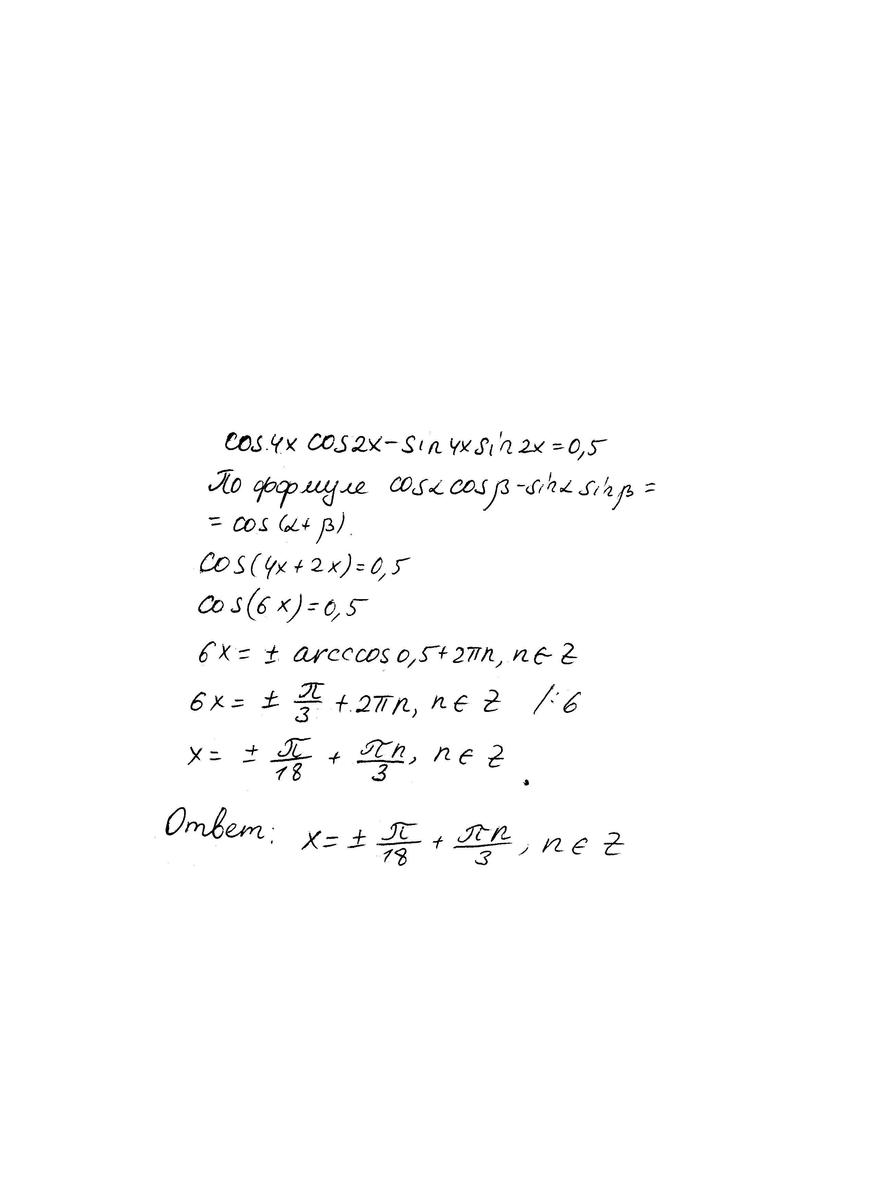 cos 4x cos 2x - sin 4x sin 2x = 0,5
По формуле cos α cos β - sin α sin β =
= cos (α + β).
cos(4x + 2x) = 0,5
cos(6x) = 0,5
6x = ± arcccos 0,5 + 2πn, n ∈ Z
6x = ± π/3 + 2πn, n ∈ Z /:6
x = ± π/18 + πn/3, n ∈ Z.
Ответ: x = ± π/18 + πn/3, n ∈ Z